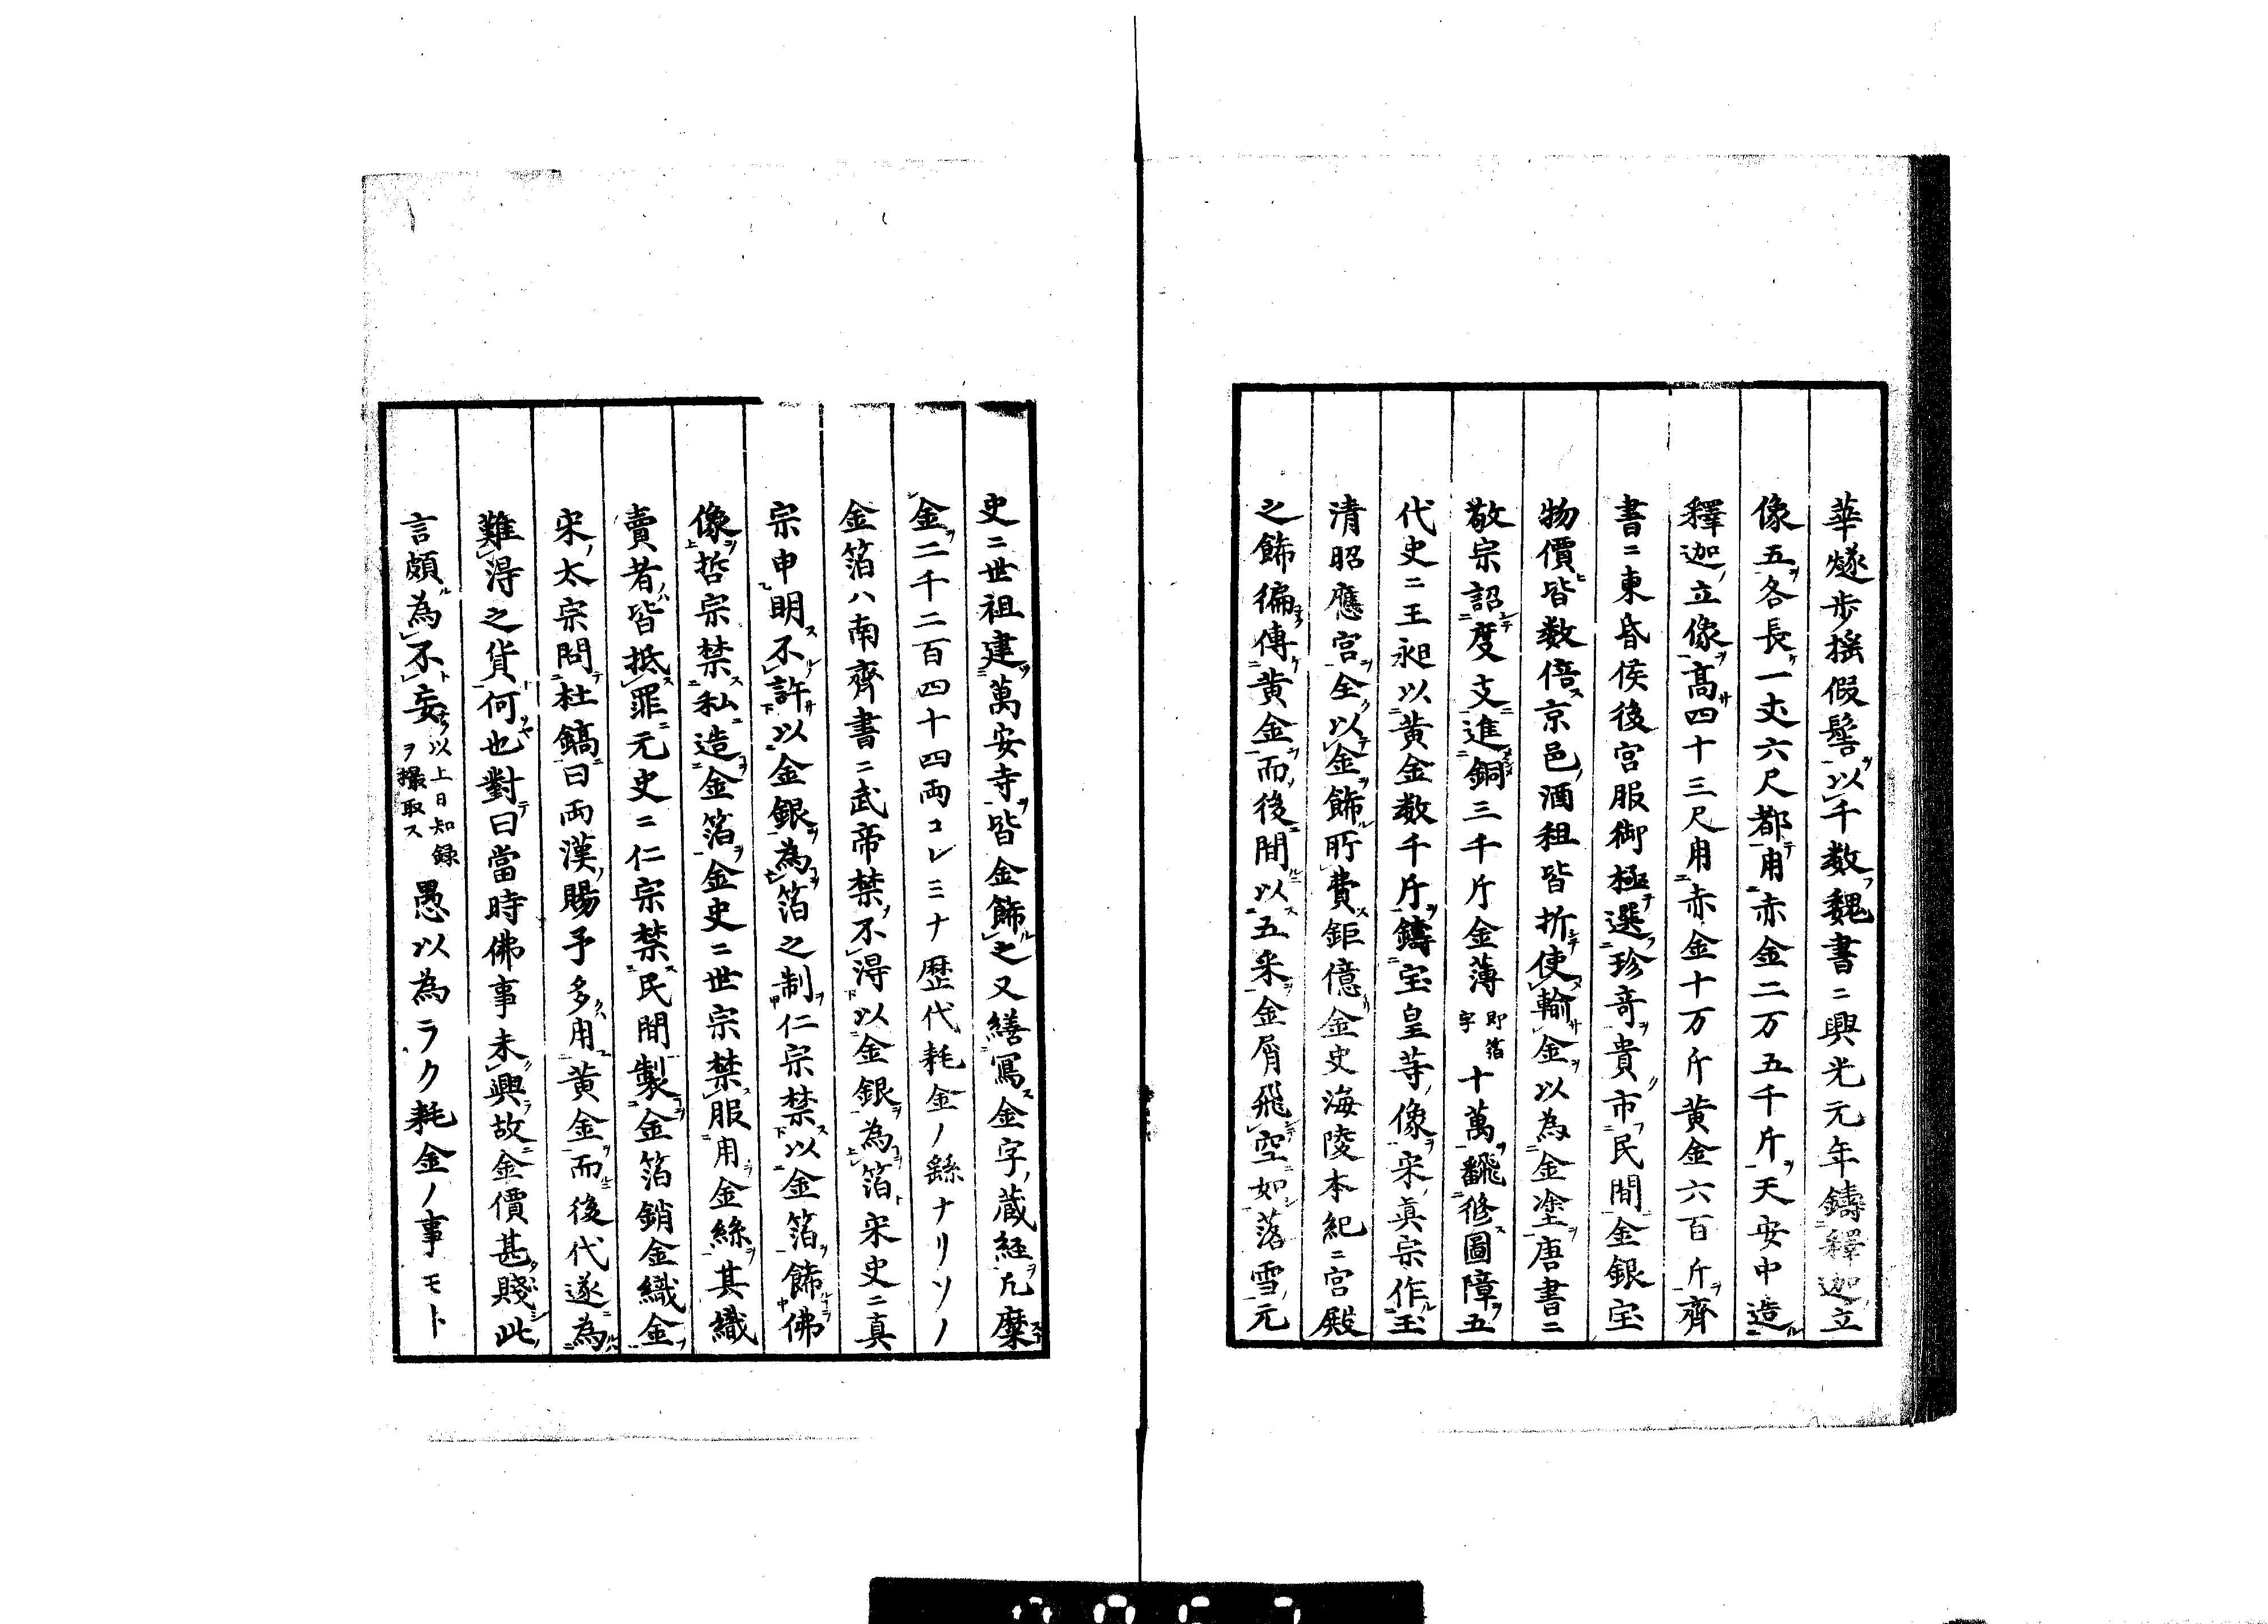 華燧歩揺假髻以千数魏書ニ興光元年鑄釋迦立
像五各長一丈六尺都用赤金二万五千斤天安中造
釋迦立像高四十三尺用赤金十万斤黄金六百斤齊
書ニ東昏侯後宮服御極選珍竒貴市民間金銀宝
物價皆数倍京邑酒租皆折使輸金以為金塗唐書ニ
敬宗詔度支進銅三千斤金薄即箔字十萬翻修圖障五
代史ニ王昶以黄金数千斤鑄宝皇䓁像宋真宗作玉
清昭應宮全以金飾所費鉅億金史海陵本紀ニ宮殿
之飾徧傳黄金而後間以五采金屑飛空如落雪元
史ニ世祖建萬安寺皆金飾之又繕冩金字蔵経凢糜
金二千二百四十四両コレミナ歴代耗金ノ繇ナリソノ
金箔ハ南齊書ニ武帝禁不得以金銀為箔宋史ニ真
宗申明不許以金銀為箔之制仁宗禁以金箔飾佛
像哲宗禁私造金箔金史ニ世宗禁服用金絲其織
賣者皆抵罪元史ニ仁宗禁民間製金箔銷金織金
宋太宗問杜鎬曰両漢賜予多用黄金而後代遂為
難得之貨何也對曰當時佛事未興故金價甚賤此
言頗為不妄以上日知録ヲ撮取ス愚以為ラク耗金ノ事モト